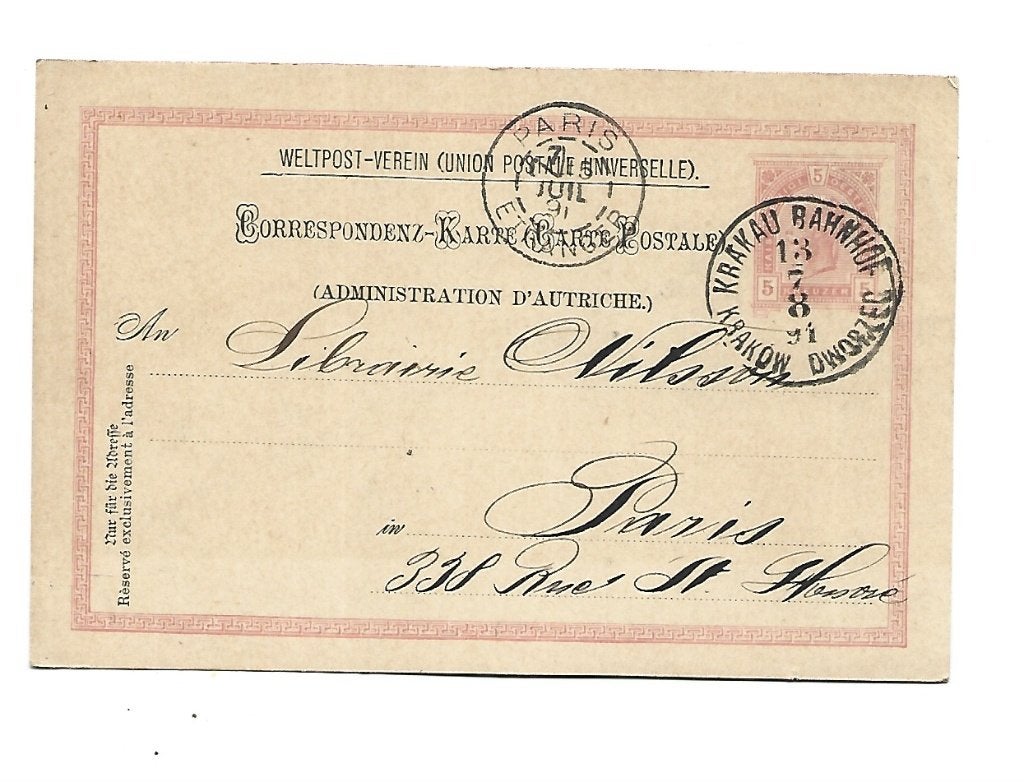 WELTPOST-VEREIN (UNION POSTALE UNIVERSELLE).
CORRESPONDENZ-KARTE (CARTE POSTALE)
(ADMINISTRATION D'AUTRICHE.)
PARIS
7
JUIL
91
ETRANGER
5
5 KREUZER 5
KRAKAU BAHNHOF
13
7
8
91
KRAKÓW DWORZEC
An Librairie Nilsson
in Paris
338 Rue St. Honoré
Nur für die Adresse
Réservé exclusivement à l'adresse